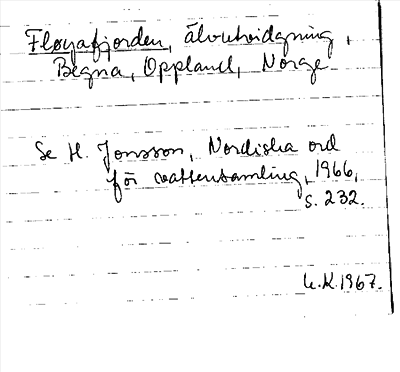 Fløyafjorden, älvutvidgning,
Begna, Oppland, Norge
Se H. Jonsson, Nordiska ord
för vattensamling, 1966,
s. 232.
L.K. 1967.